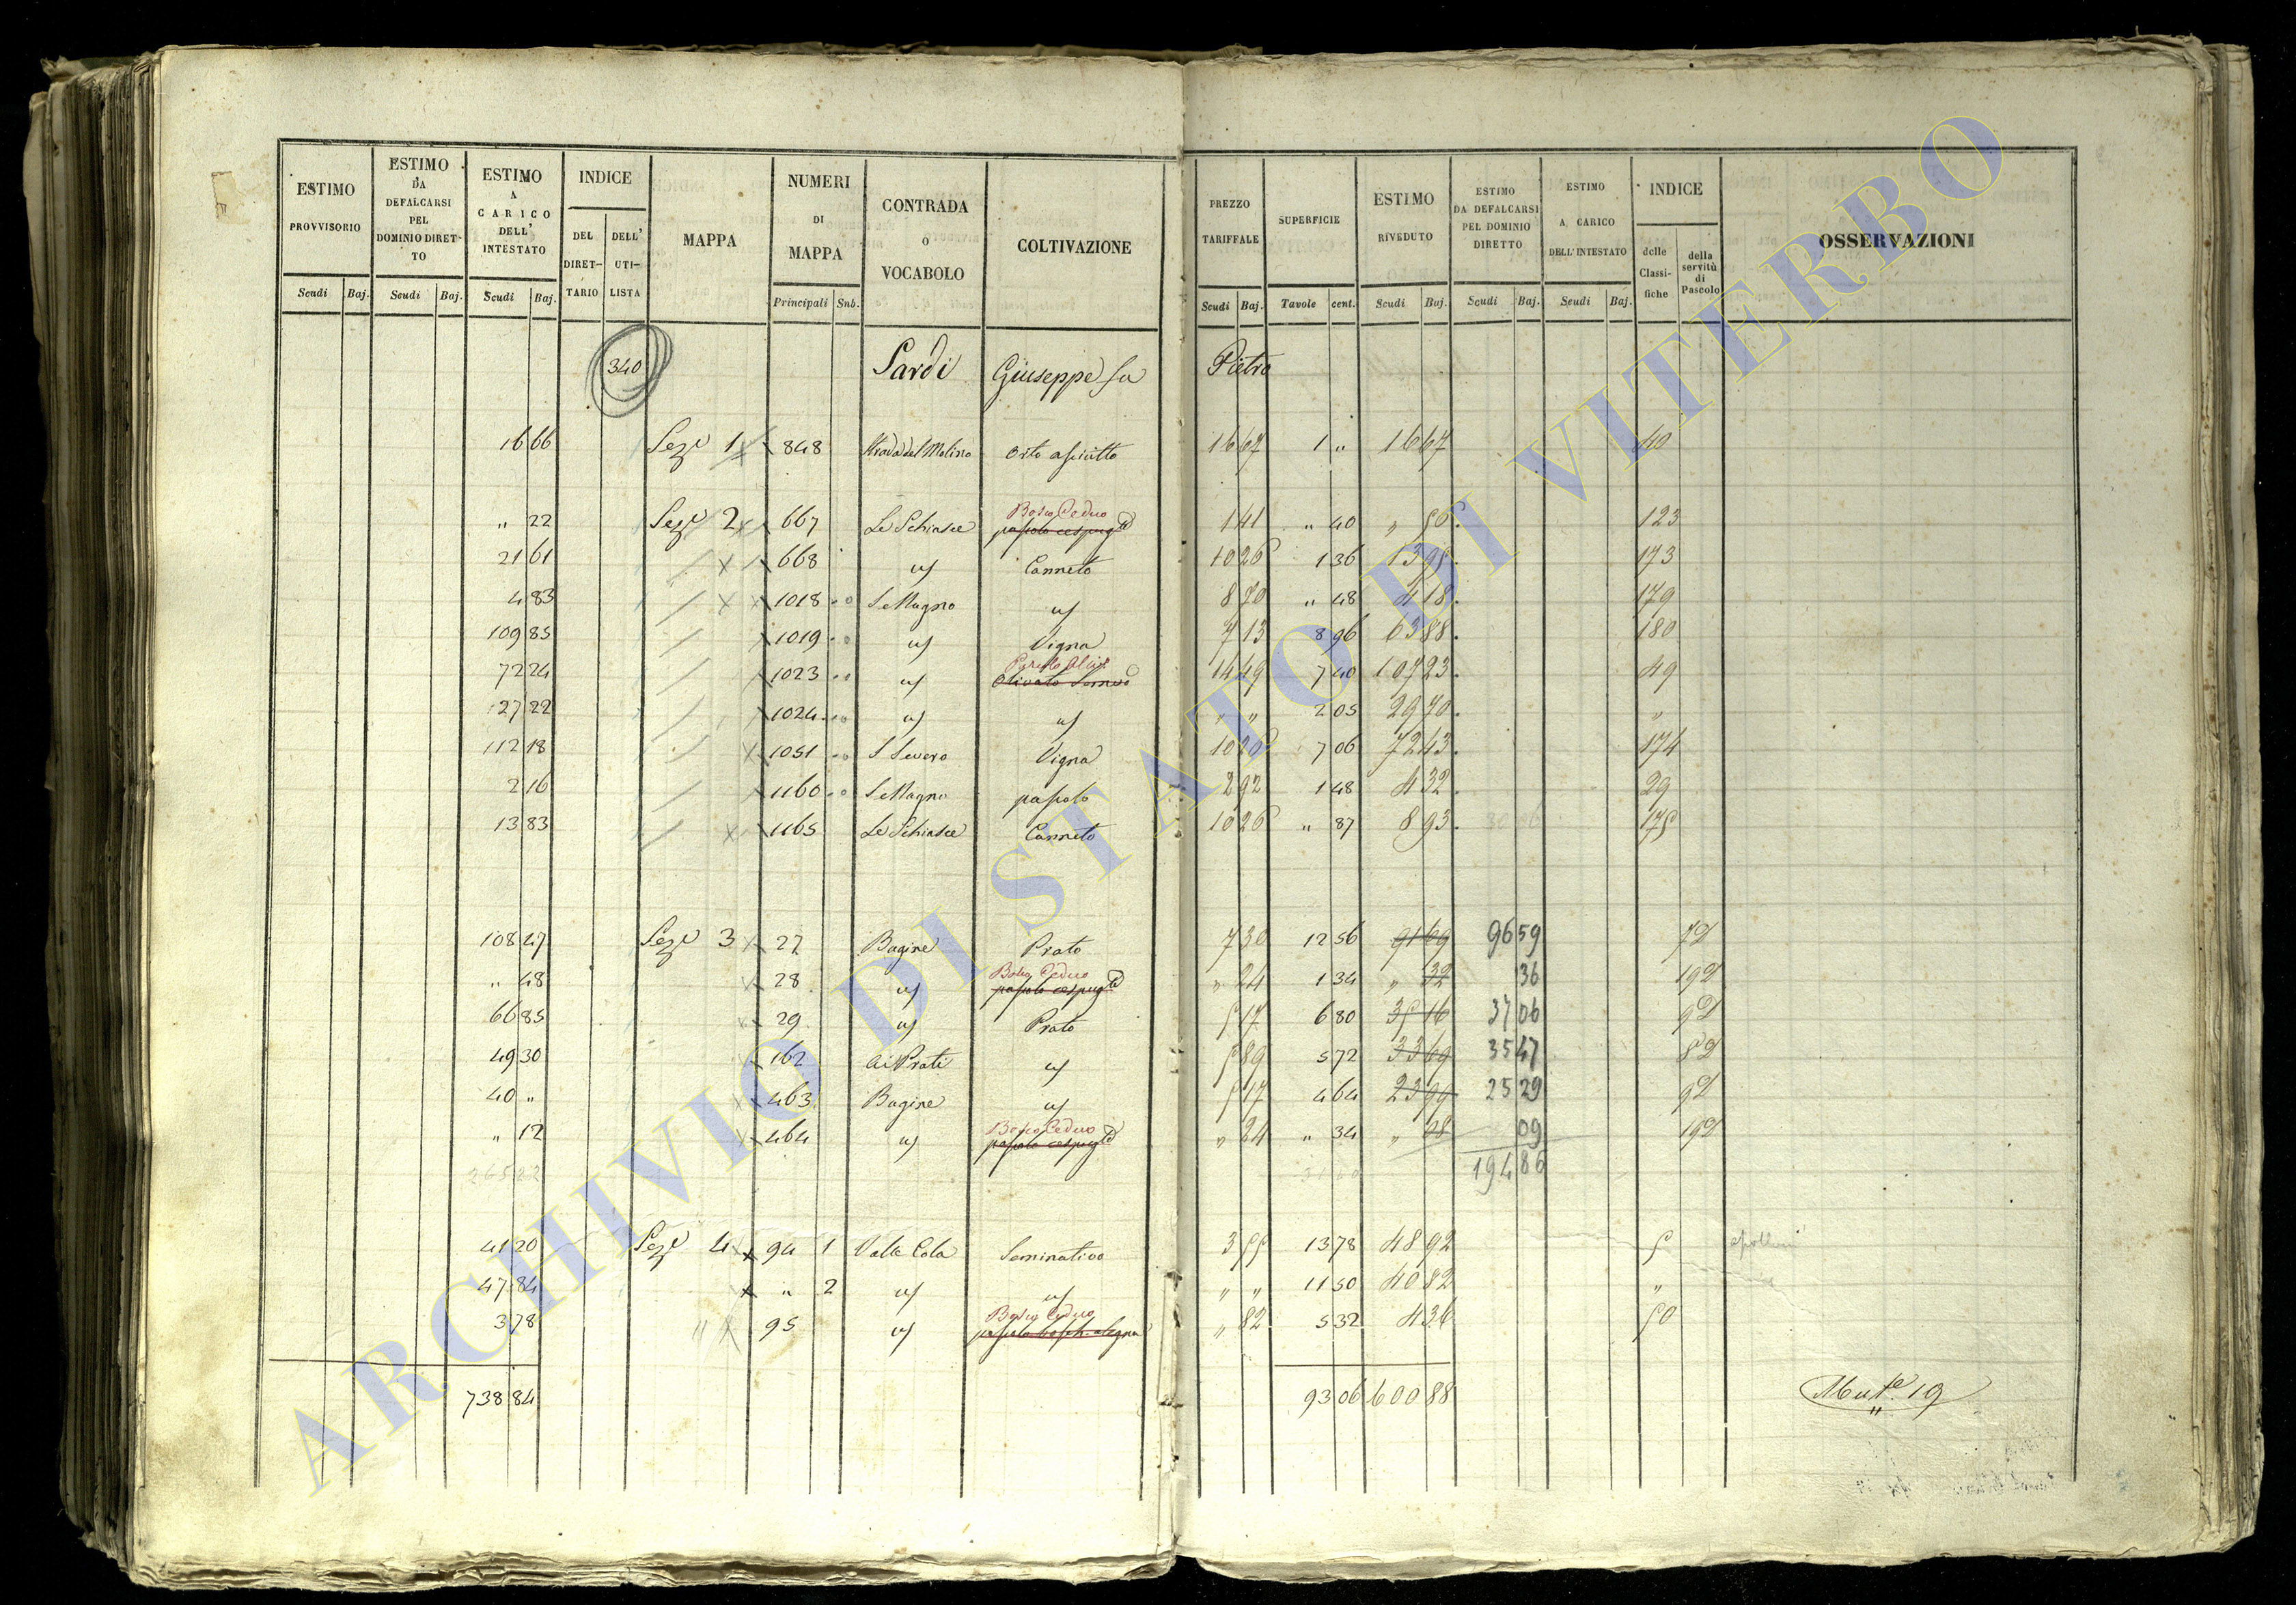 ESTIMO PROVVISORIO Scudi Baj.
ESTIMO DA DEFALCARSI PEL DOMINIO DIRET- TO Scudi Baj.
ESTIMO A CARICO DELL' INTESTATO Scudi Baj.
INDICE DEL DIRET- TARIO DELL' UTI- LISTA
MAPPA
NUMERI DI MAPPA Principali Snb.
CONTRADA O VOCABOLO
COLTIVAZIONE
PREZZO TARIFFALE Scudi Baj.
SUPERFICIE Tavole cent.
ESTIMO RIVEDUTO Scudi Baj.
ESTIMO DA DEFALCARSI PEL DOMINIO DIRETTO Scudi Baj.
ESTIMO A CARICO DELL'INTESTATO Scudi Baj.
INDICE delle Classi- fiche della servitù di Pascolo
OSSERVAZIONI
340 Sardi Giuseppe fu Pietro
16 66 Sez.e 1 848 Strada del Molino Orto asciutto 16 67 1 " 16 67 40
Bosco Ceduo
" 22 Sez.e 2 667 Le Schiasce pascolo cespug.to 1 41 " 40 " 56 123
21 61 668 " Canneto 10 26 1 36 13 95 173
4 83 1018 S. Magno " 8 70 " 48 4 18 179
109 85 1019 " Vigna 7 13 8 96 63 88 180
72 24 1023 " Olivato 14 49 7 40 107 23 49
127 22 1024 " " " " 2 05 29 70 "
112 18 1051 S. Severo Vigna 10 26 7 06 72 43 174
2 16 1160 S. Magno pascolo 2 92 1 48 4 32 29
13 83 1165 Le Schiasce Canneto 10 26 " 87 8 93 175
108 47 Sez.e 3 27 Bagine Prato 7 30 12 56 91 69 96 59 7
Bosco Ceduo
" 48 28 " pascolo cespug.to " 24 1 34 " 32 36 19
66 85 29 " Prato 5 17 6 80 35 16 37 06 9
49 30 162 Ai Prati " 5 89 5 72 33 69 35 47 8
40 " 463 Bagine " 5 17 4 64 23 99 25 29 9
Bosco Ceduo
" 12 464 " pascolo cespug.to " 24 " 34 " 08 09 19
265 22 194 86
41 20 Sez.e 4 94 1 Valle Cola Seminativo 3 55 13 78 48 92 5
47 84 " 2 " " " " 11 50 40 82 "
Bosco Ceduo
3 78 95 " " 82 5 32 4 36 50
738 84 93 06 600 88 Mut.e 19
ARCHIVIO DI STATO DI VITERBO